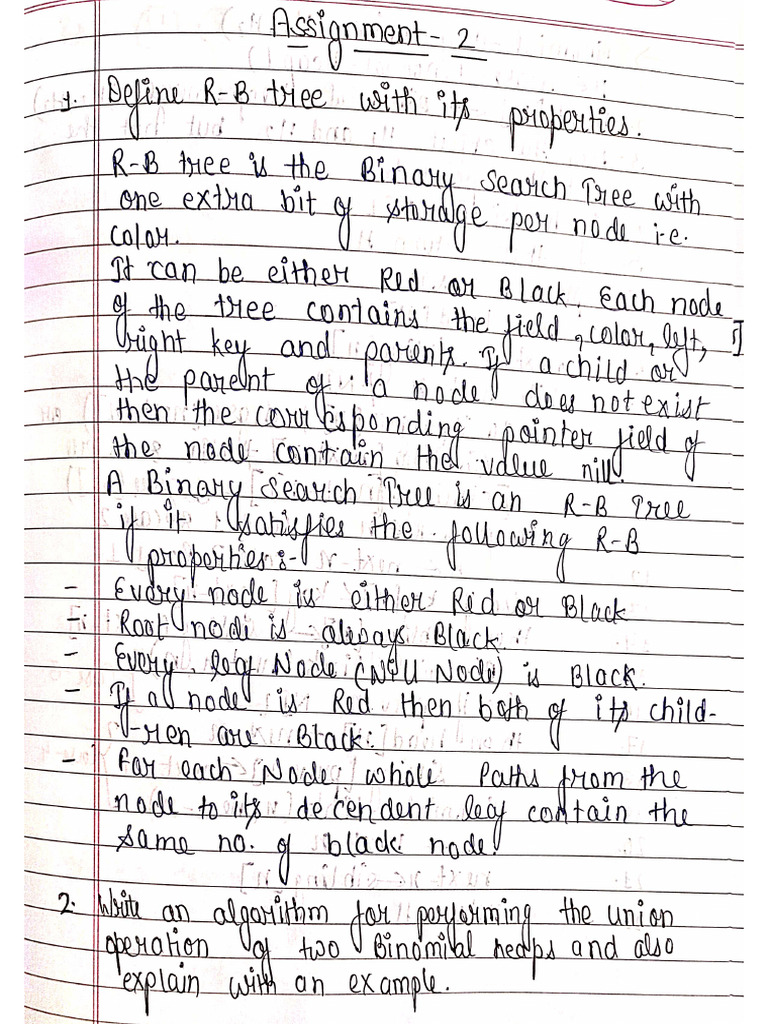 Assignment - 2
1. Define R-B tree with its properties.
R-B tree is the Binary Search Tree with
one extra bit of storage per node i.e.
color.
It can be either Red or Black. Each node
of the tree contains the field, color, left,
right key and parents. If a child or
the parent of a node does not exist
then the corresponding pointer field of
the node contain the value nill.
A Binary Search Tree is an R-B Tree
if it satisfies the following R-B
properties:-
- Every node is either Red or Black
- Root node is always Black.
- Every leaf Node (NIU Node) is Black.
- If a node is Red then both of its child-
-ren are Black.
- For each Node whole Paths from the
node to its decendent leaf contain the
same no. of black node.
2. Write an algorithm for performing the union
operation of two Binomial heaps and also
explain with an example.